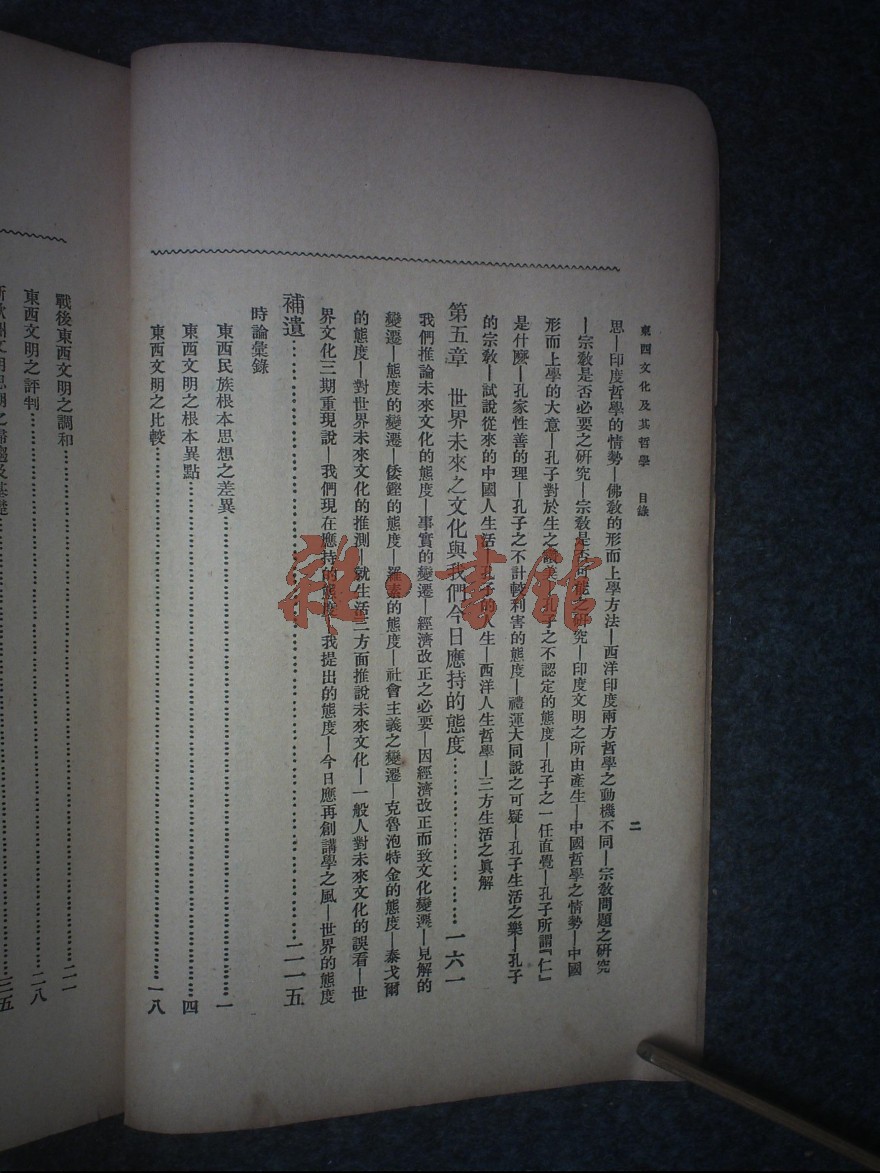 東西文化及其哲學　目錄
二
思—印度哲學的情勢—佛教的形而上學方法—西洋印度兩方哲學之動機不同—宗教問題之硏究
—宗教是否必要之硏究—宗教是否可能之硏究—印度文明之所由產生—中國哲學之情勢—中國
形而上學的大意—孔子對於生之讚美—孔子之不認定的態度—孔子之一任直覺—孔子所謂『仁』
是什麽—孔家性善的理—孔子之不計較利害的態度—禮運大同說之可疑—孔子生活之樂—孔子
的宗教—試說從來的中國人生活—孔子的人生—西洋人生哲學—三方生活之眞解
第五章　世界未來之文化與我們今日應持的態度…………………一六一
我們推論未來文化的態度—事實的變遷—經濟改正之必要—因經濟改正而致文化變遷—見解的
變遷—態度的變遷—倭鏗的態度—羅素的態度—社會主義之變遷—克魯泡特金的態度—泰戈爾
的態度—對世界未來文化的推測—就生活三方面推說未來文化—一般人對未來文化的誤看—世
界文化三期重現說—我們現在應持的態度—我提出的態度—今日應再創講學之風—世界的態度
補遺…………………二一五
時論彙錄
東西民族根本思想之差異…………………一
東西文明之根本異點…………………四
東西文明之比較…………………一八
戰後東西文明之調和…………………二一
東西文明之評判…………………二八
新歐洲文明思潮之歸趨及基礎…………………三五
雜·書館